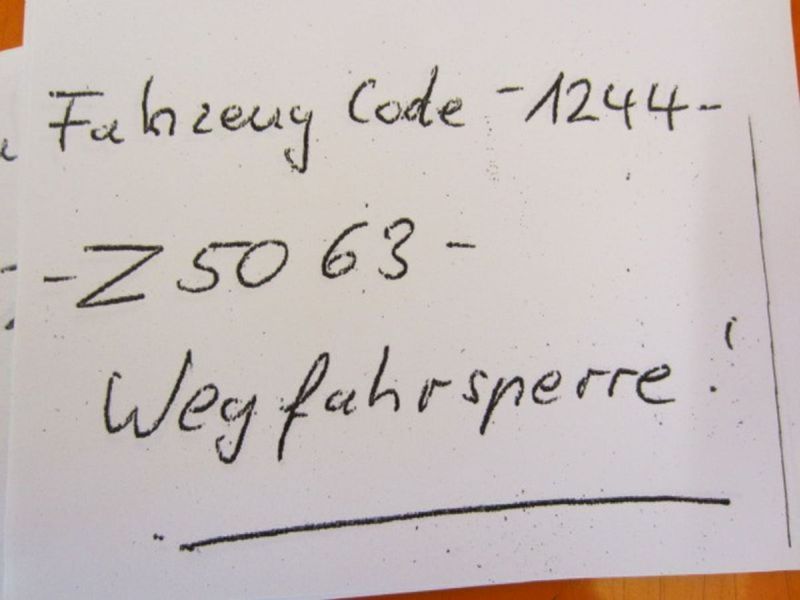 Fahrzeug Code -1244-
-Z5063-
Wegfahrsperre!